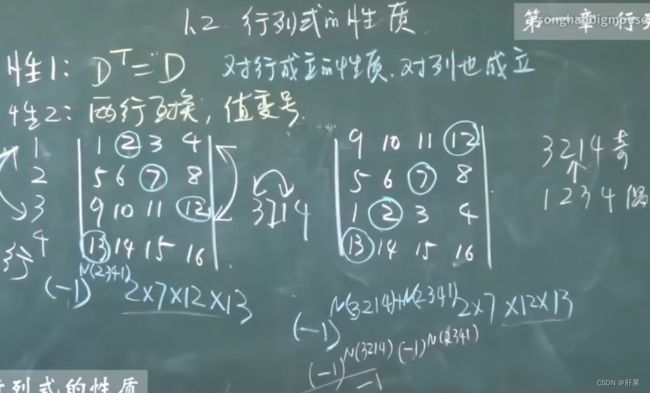 1.2. 行列式的性质
songhaobigmouse
第一章 行列
性1: Dᵀ=D 对行成立的性质,对列也成立
性2: 两行互换, 值变号
1 | 1 2 3 4 |
2 | 5 6 7 8 |
3 | 9 10 11 12 |
4 | 13 14 15 16 |
行
3214
| 9 10 11 12 |
| 5 6 7 8 |
| 1 2 3 4 |
| 13 14 15 16 |
3214 奇
1234 偶
(-1)^N(2341) 2×7×12×13
(-1)^N(3214)+N(2341) 2×7×12×13
(-1)^N(3214) (-1)^N(2341)
-1
行列式的性质
CSDN @肝果